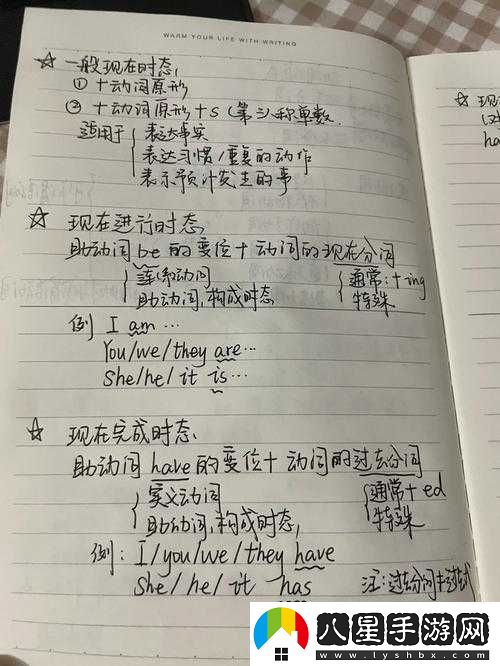 WARM YOUR LIFE WITH WRITING
☆ 一般现在时态
① 十动词原形
② 十动词原形十s (第三人称单数
适用于 { 表达事实
表达习惯/重复的动作
表示预计发生的事
☆ 现在进行时态
助动词 be 的变位十动词的现在分词
{ 连系动词
助动词,构成时态
{ 通常:十ing
特殊
例 I am …
You/we/they are…
She/he/it is…
☆ 现在完成时态
助动词 have 的变位十动词的过去分词
{ 实义动词
助动词,构成时态
{ 通常十ed
特殊
例: I/you/we/they have
She/he/it has
注:过去分词
☆ 现
ha
八星手游网
www.lyshbx.com